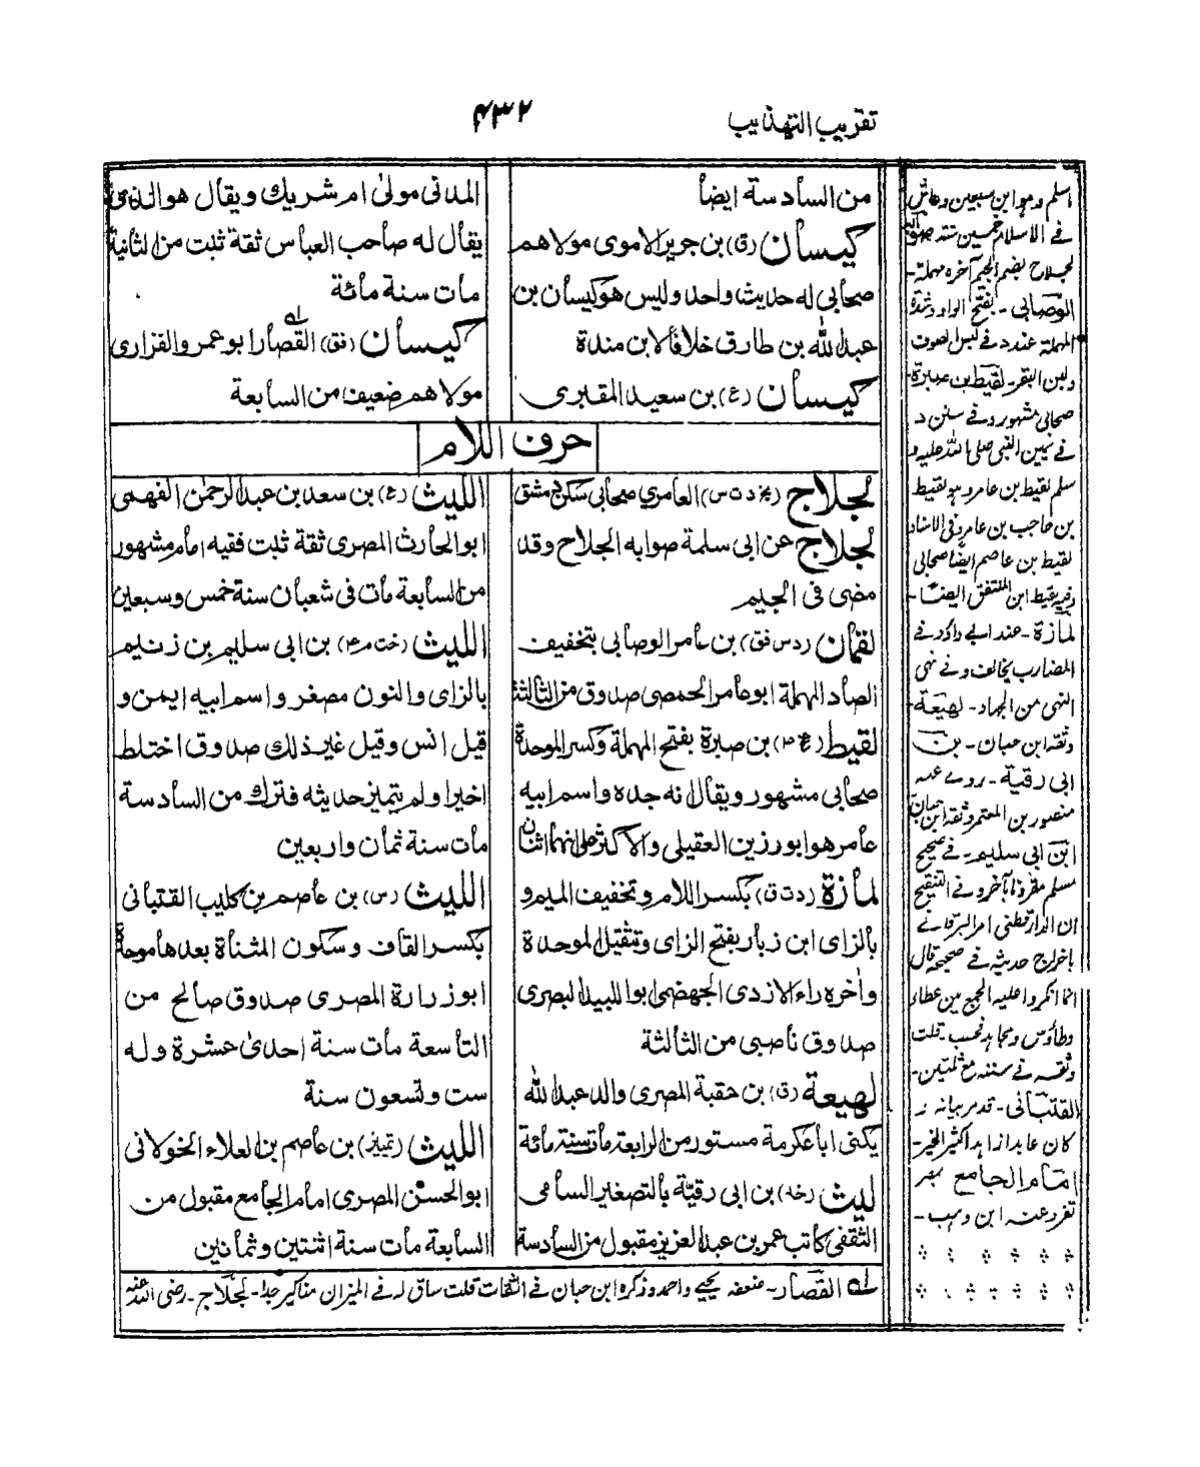 تقريب التهذيب
۴۳۲
من السادسة ايضا
كيسان (ق) بن جرير الاموى مولاهم
صحابى له حديث واحد وليس هو كيسان بن
عبد الله بن طارق خلافا لابن مندة
كيسان (ع) بن سعيد المقبرى
المدنى مولىٰ ام شريك ويقال هو الذى
يقال له صاحب العباس ثقة ثبت من الثانية
مات سنة مائة
كيسان (فق) القصار ابو عمرو الفزارى
مولاهم ضعيف من السابعة
حرف اللام
لجلاج (بخ د ت س) العامري صحابى سكن دمشق
لجلاج عن ابى سلمة صوابه الجلاح وقد
مضى فى الجيم
لقمان (د س فق) بن عامر الوصابى بتخفيف
الصاد المهملة ابو عامر الحمصى صدوق من الثالثة
لقيط (بخ ۴) بن صبرة بفتح المهملة وكسر الموحدة
صحابى مشهور ويقال انه جده واسم ابيه
عامر هو ابو رزين العقيلى والاكثر على انهما اثنان
لمازة (د ت ق) بكسر اللام وتخفيف الميم و
بالزاى ابن زبار بفتح الزاى وتثقيل الموحدة
واٰخره راء الازدى الجهضمى ابو اللبيد البصرى
صدوق ناصبى من الثالثة
لهيعة (ق) بن عقبة المصرى والد عبد الله
يكنى ابا عكرمة مستور من الرابعة مات سنة مائة
ليث (خه) بن ابى رقيّة بالتصغير الشامى
الثقفى كاتب عمر بن عبد العزيز مقبول من السادسة
الليث (ع) بن سعد بن عبد الرحمٰن الفهمى
ابو الحارث المصرى ثقة ثبت فقيه امام مشهور
من السابعة مات فى شعبان سنة خمس وسبعين
الليث (خت م ۴) بن ابى سليم بن زنيم
بالزاى والنون مصغر واسم ابيه ايمن و
قيل انس وقيل غير ذلك صدوق اختلط
اخيرا ولم يتميز حديثه فترك من السادسة
مات سنة ثمان واربعين
الليث (س) بن عاصم بن كليب القتبانى
بكسر القاف وسكون المثناة بعدها موحدة
ابو زرارة المصرى صدوق صالح من
التاسعة مات سنة احدىٰ عشرة وله
ست وتسعون سنة
الليث (تمييز) بن عاصم بن العلاء الخولانى
ابو الحسن المصرى امام الجامع مقبول من
السابعة مات سنة اثنتين وثمانين
له القصار - ضعفه يحيے واحمد وذكره ابن حبان فے الثقات قلت ساق له فے الميزان مناكير جدا - لجلاج - رضى الله عنه
اسلم وهو ابن سبعين وعاش
فے الاسلام خمسين سنة
لجلاح بضم الجيم آخره مهملة -
الوصابى - بفتح الواو وشدة
المهملة عند د فے لبس الصوت
ولبن البقر - لقيط بن صبرة -
صحابى مشهور وفے سنن د
فے يمين النبى صلى الله عليه و
سلم لقيط بن عامر وهو لقيط
بن حاجب بن عامر وفى الاسناد
لقيط بن عاصم ايضا صحابى
وفيه لقيط ابن المنتفق ايضا -
لمازة - عند ابے داؤد فے
المضارب يخالف وفے نهى
النهى من الجهاد - لهيعة -
وثقه ابن حبان - بن
ابى رقية - روے عنه
منصور بن المعتمر وثقه ابن حبان
ابن ابى سليم - فے صحيح
مسلم مقرونا بآخر وفے التنقيح
ان الدارقطنى امر البرقانے
باخراج حديثه فے صحيحه قال
انما انكروا عليه الجمع بين عطاء
وطاؤس ومجاهد فحسب - قلت
وثقه فے سننه مع ثمتين -
القتبانى - قد مر بيانه ز
كان عابدا زاهدا كثير الخير -
امام الجامع بمصر
تفرد عنه ابن وهب -